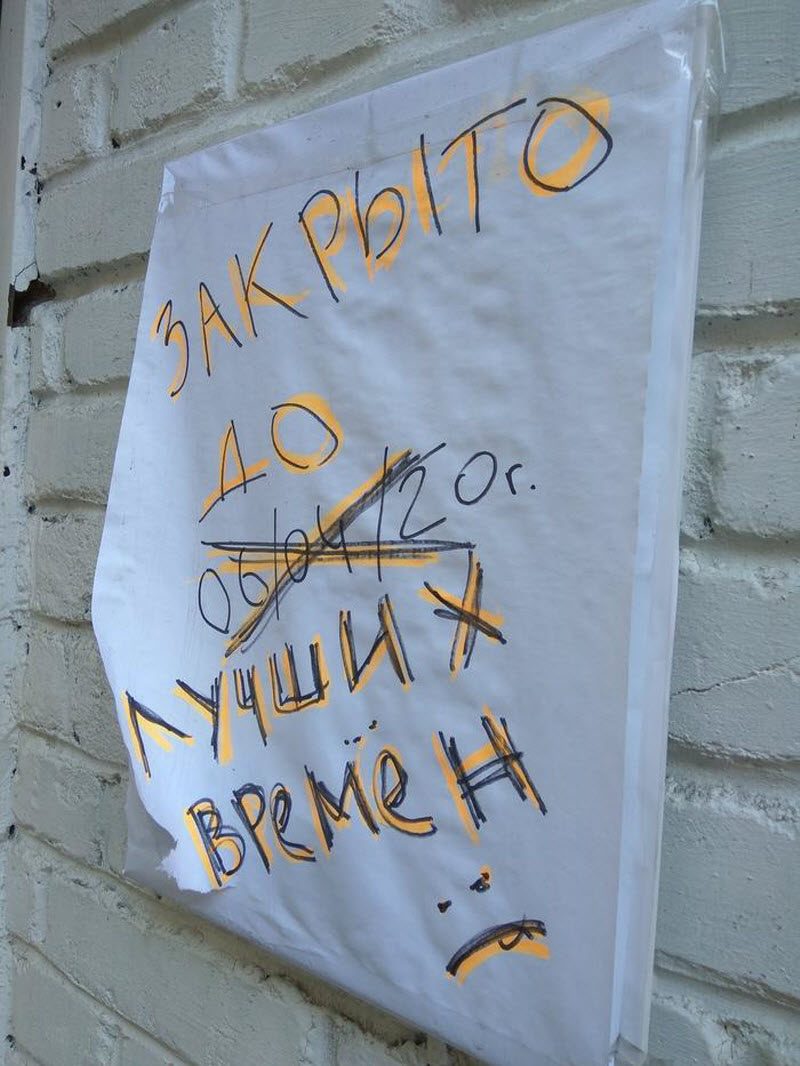 ЗАКРЫТО
ДО
06/04/20г.
ЛУЧШИХ
ВРЕМЁН
:(